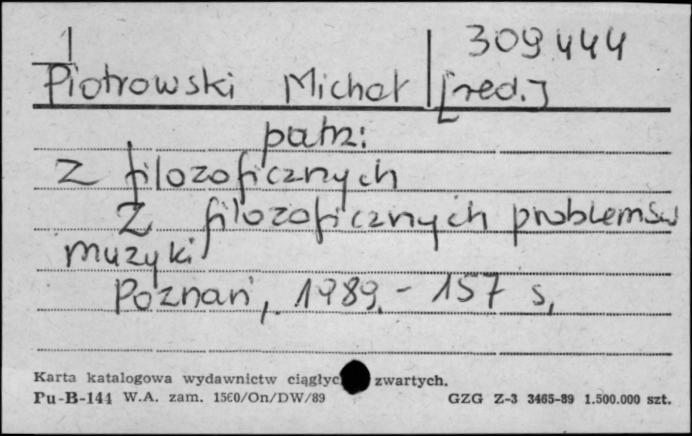 309444
Piotrowski Michał [red.]
patrz:
Z filozoficznych
Z filozoficznych problemów
muzyki
Poznań, 1989. - 157 s,
Karta katalogowa wydawnictw ciągłyc zwartych.
Pu-B-144 W.A. zam. 1560/On/DW/89 GZG Z-3 3465-89 1.500.000 szt.